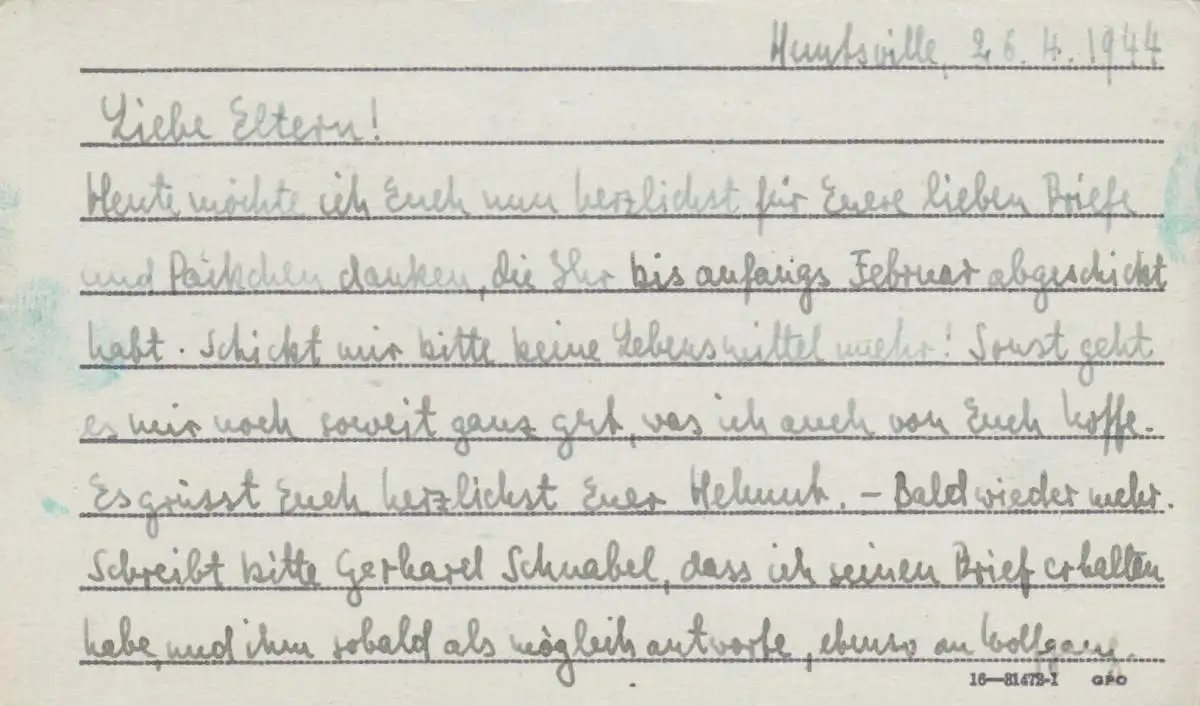 Huntsville, 26.4.1944
Liebe Eltern!
Heute möchte ich Euch nun herzlichst für Euere lieben Briefe
und Päckchen danken, die Ihr bis anfangs Februar abgeschickt
habt. Schickt mir bitte keine Lebensmittel mehr! Sonst geht
es mir noch soweit ganz gut, was ich auch von Euch hoffe.
Es grüsst Euch herzlichst Euer Helmut. – Bald wieder mehr.
Schreibt bitte Gerhard Schnabel, dass ich seinen Brief erhalten
habe, und ihm sobald als möglich antworte, ebenso an Wolfgang.
16—81472-1 GPO